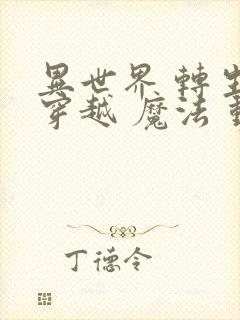 異世界 轉生
穿越 魔法 
丁德令